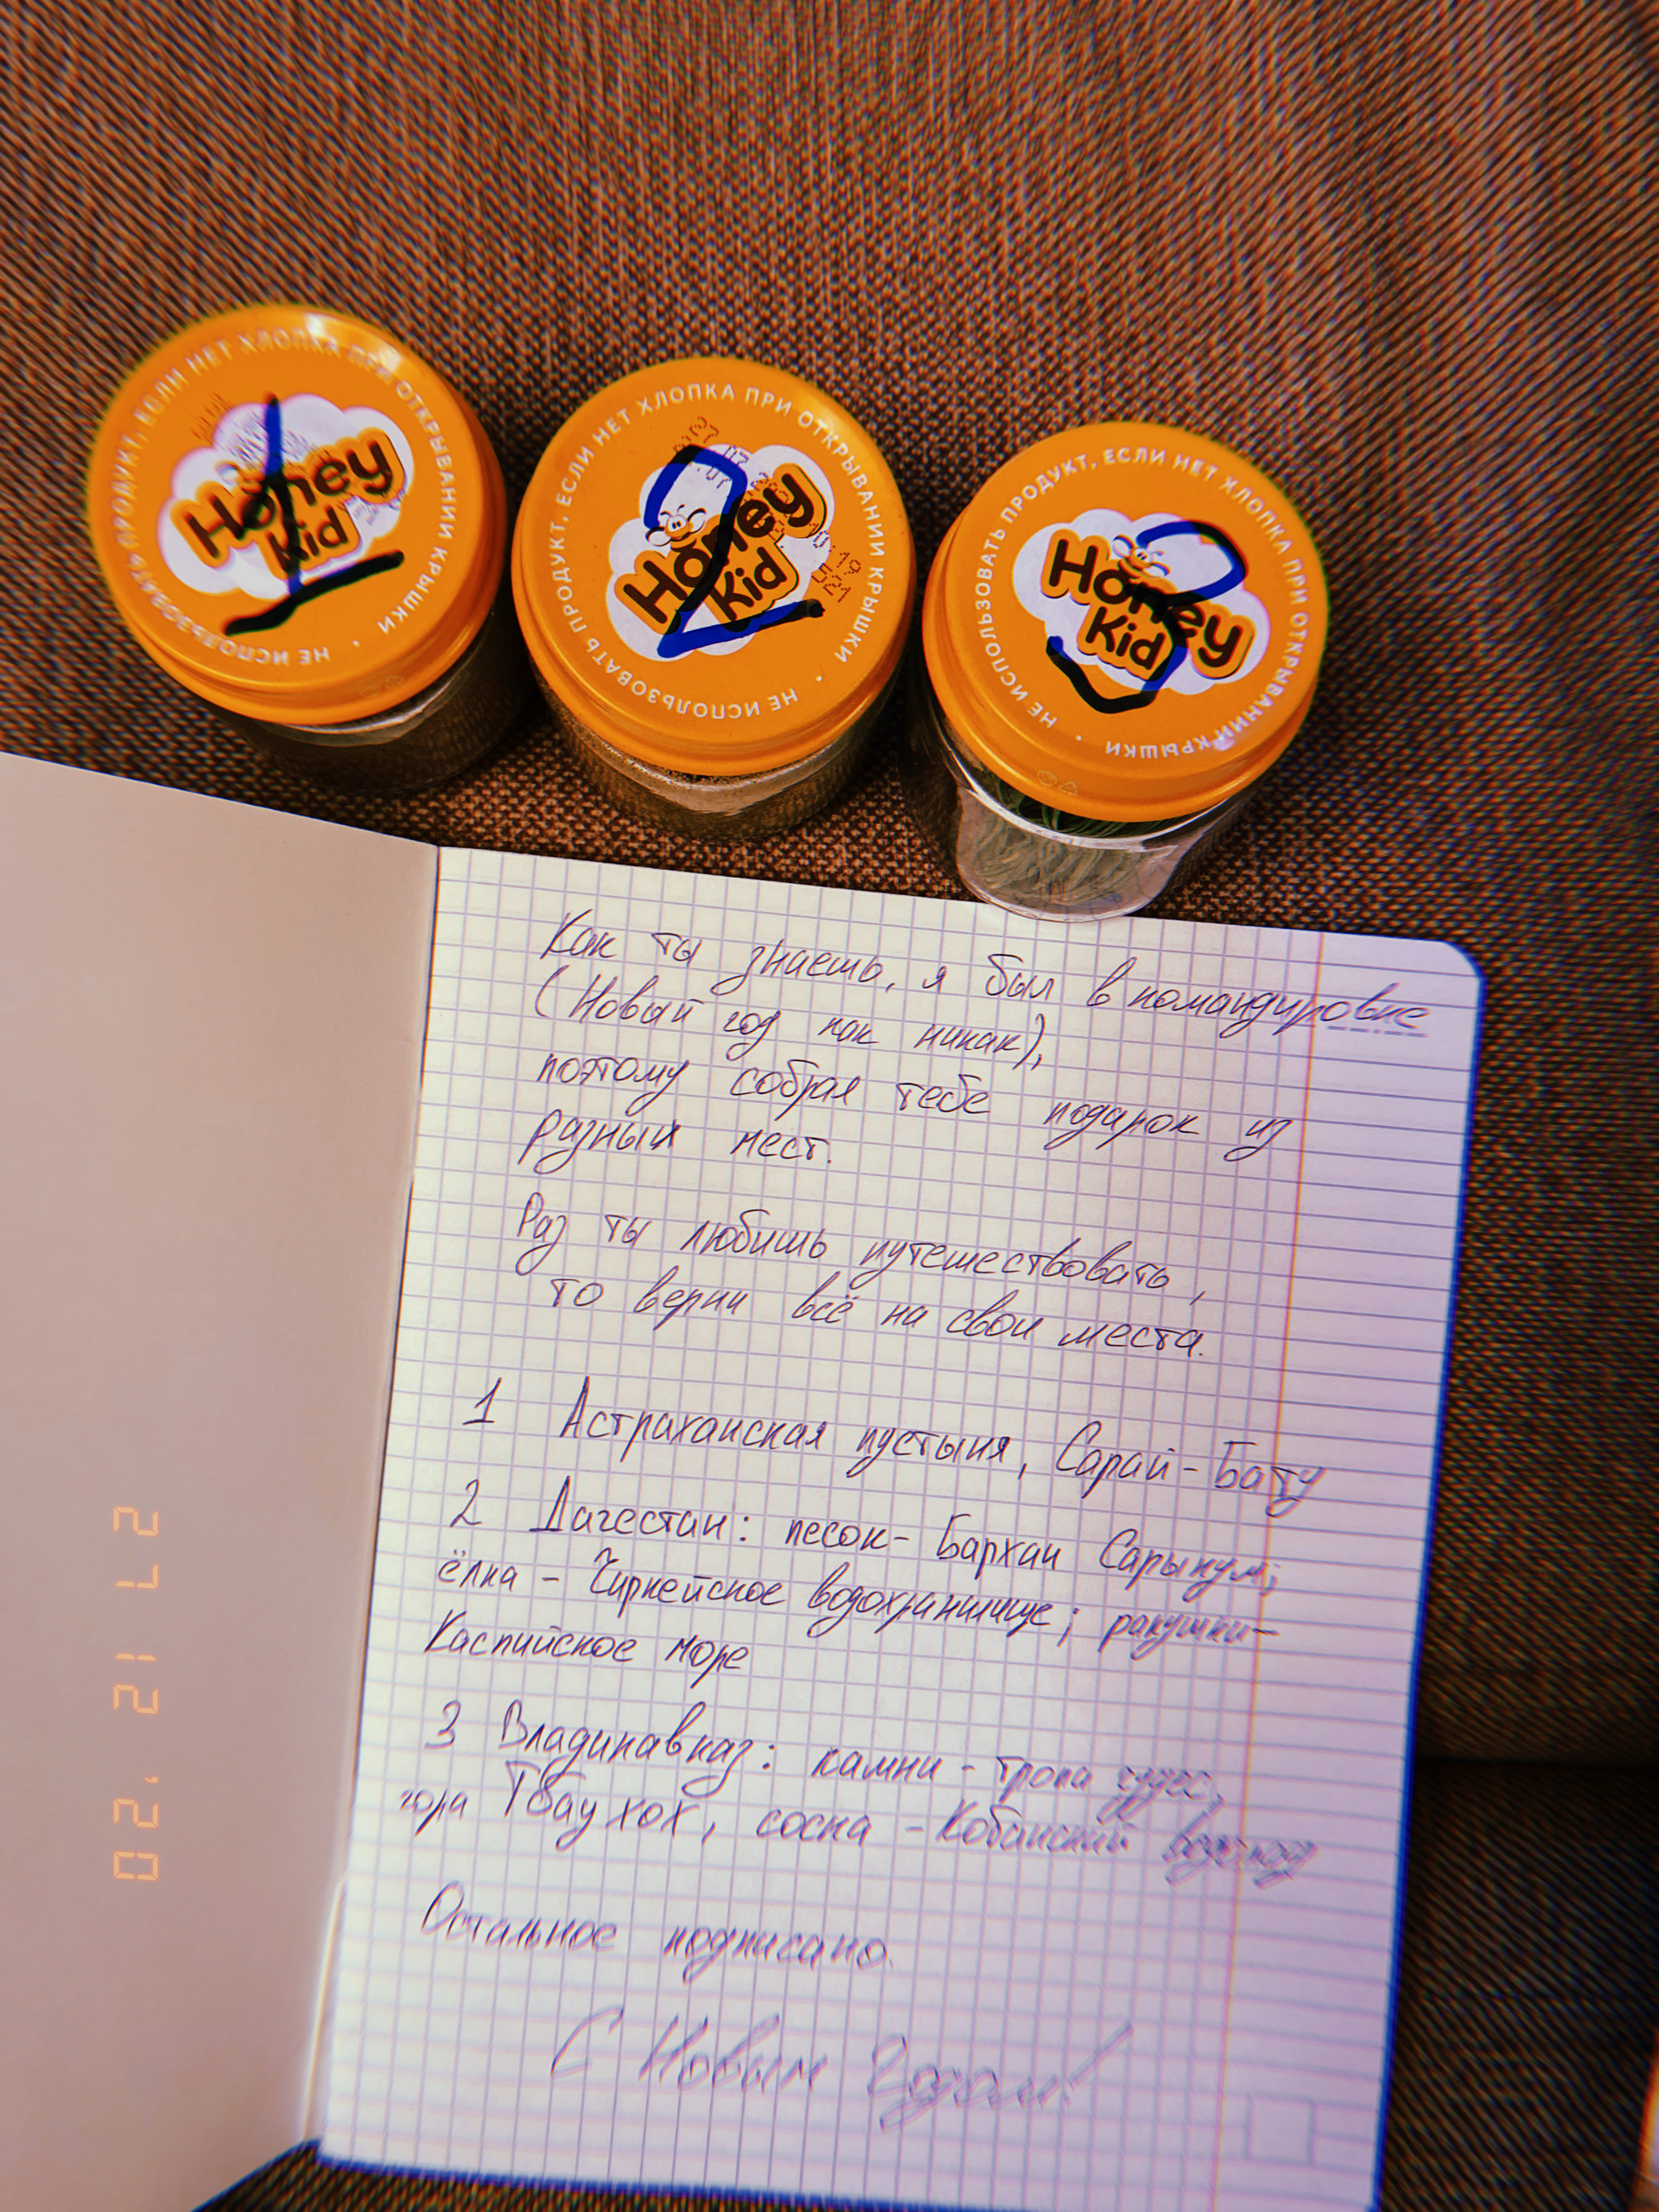 НЕ ИСПОЛЬЗОВАТЬ ПРОДУКТ, ЕСЛИ НЕТ ХЛОПКА ПРИ ОТКРЫВАНИИ КРЫШКИ •
Honey
Kid
1
НЕ ИСПОЛЬЗОВАТЬ ПРОДУКТ, ЕСЛИ НЕТ ХЛОПКА ПРИ ОТКРЫВАНИИ КРЫШКИ •
Honey
Kid
2
НЕ ИСПОЛЬЗОВАТЬ ПРОДУКТ, ЕСЛИ НЕТ ХЛОПКА ПРИ ОТКРЫВАНИИ КРЫШКИ •
Honey
Kid
3
Как ты знаешь, я был в командировке
(Новый год как никак),
поэтому собрал тебе подарок из
разных мест.
Раз ты любишь путешествовать,
то верни всё на свои места.
1 Астраханская пустыня, Сарай-Бату
2 Дагестан: песок - Бархан Сарыкум;
ёлка - Чиркейское водохранилище; ракушки -
Каспийское море
3 Владикавказ: камни - тропа чудес,
гора Тбау хох, сосна - Кобанский водопад
Остальное подписано.
С Новым Годом!
27 12 '20